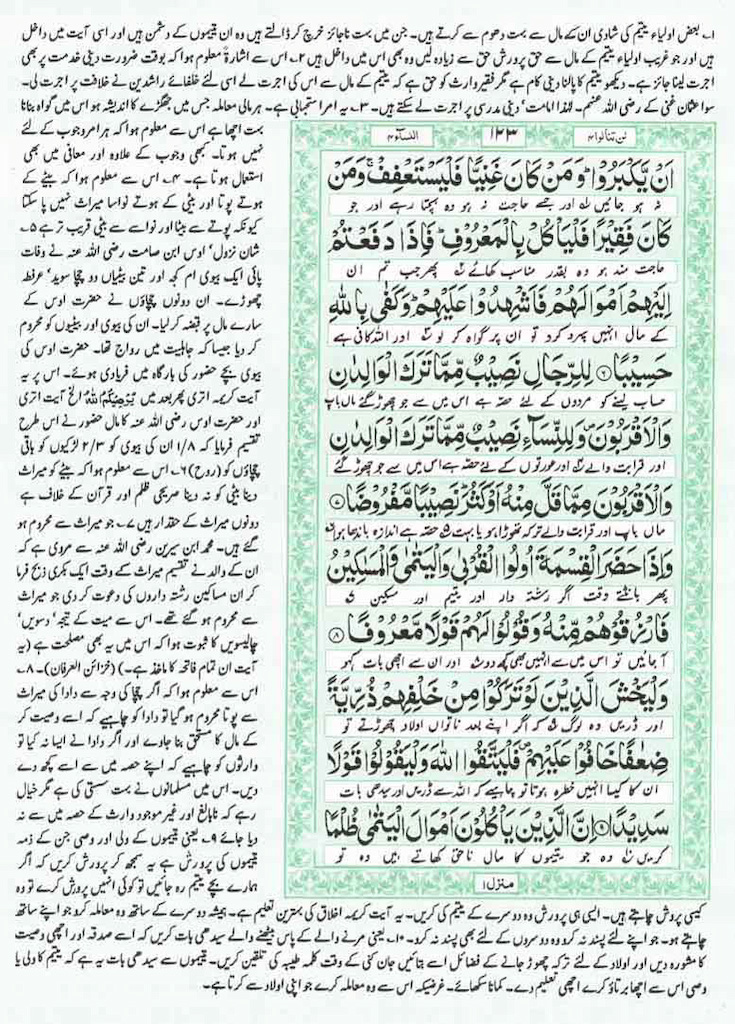 ۱۔ بعض اولیاء یتیم کی شادی ان کے مال سے بہت دھوم سے کرتے ہیں۔ جن میں بہت ناجائز خرچ کر ڈالتے ہیں وہ ان یتیموں کے دشمن ہیں اور اسی آیت میں داخل
ہیں اور جو غریب اولیاء یتیم کے مال سے حق پرورش حق سے زیادہ لیں وہ بھی اس میں داخل ہیں ۲۔ اس سے اشارۃً معلوم ہوا کہ بوقت ضرورت دینی خدمت پر بھی
اجرت لینا جائز ہے۔ دیکھو یتیم کا پالنا دینی کام ہے مگر فقیر وارث کو حق ہے کہ یتیم کے مال سے اس کی اجرت لے اسی لئے خلفائے راشدین نے خلافت پر اجرت لی۔
سوا عثمان غنی کے رضی اللہ عنہم۔ لہذا امامت' دینی مدرسی پر اجرت لے سکتے ہیں۔ ۳۔ یہ امر استحبابی ہے۔ ہر مالی معاملہ جس میں جھگڑے کا اندیشہ ہو اس میں گواہ بنانا
بہت اچھا ہے اس سے معلوم ہوا کہ ہر امر وجوب کے لئے
نہیں ہوتا۔ کبھی وجوب کے علاوہ اور معانی میں بھی
استعمال ہوتا ہے۔ ۴۔ اس سے معلوم ہوا کہ بیٹے کے
ہوتے پوتا اور بیٹی کے ہوتے نواسا میراث نہیں پا سکتا
کیونکہ پوتے سے بیٹا اور نواسے سے بیٹی قریب تر ہے ۵۔
شان نزول' اوس ابن صامت رضی اللہ عنہ نے وفات
پائی ایک بیوی ام کجہ اور تین بیٹیاں دو چچا سوید' عرفطہ
چھوڑے۔ ان دونوں چچاؤں نے حضرت اوس کے
سارے مال پر قبضہ کر لیا۔ ان کی بیوی اور بیٹیوں کو محروم
کر دیا جیسا کہ جاہلیت میں رواج تھا۔ حضرت اوس کی
بیوی بچے حضور کی بارگاہ میں فریادی ہوئے۔ اس پر یہ
آیت کریمہ اتری پھر بعد میں یُوْصِیْکُمُ اللہُ الخ آیت اتری
اور حضرت اوس رضی اللہ عنہ کا مال حضور نے اس طرح
تقسیم فرمایا کہ ۱/۸ ان کی بیوی کو ۲/۳ لڑکیوں کو باقی
چچاؤں کو (روح) ۶۔ اس سے معلوم ہوا کہ بیٹے کو میراث
دینا بیٹی کو نہ دینا صریحی ظلم اور قرآن کے خلاف ہے
دونوں میراث کے حقدار ہیں ۷۔ جو میراث سے محروم ہو
گئے ہیں۔ محمد ابن سیرین رضی اللہ عنہ سے مروی ہے کہ
ان کے والد نے تقسیم میراث کے وقت ایک بکری ذبح فرما
کر ان مساکین رشتہ داروں کی دعوت کر دی جو میراث
سے محروم ہو گئے تھے۔ اس سے میت کے تیجہ' دسویں'
چالیسویں کا ثبوت ہوا کہ اس میں یہ بھی مصلحت ہے (یہ
آیت ان تمام فاتحہ کا ماخذ ہے۔) (خزائن العرفان)۔ ۸۔
اس سے معلوم ہوا کہ اگر چچا کی وجہ سے دادا کی میراث
سے پوتا محروم ہو گیا تو دادا کو چاہیے کہ اسے وصیت کر
کے مال کا مستحق بنا جاوے اور اگر دادا نے ایسا نہ کیا تو
وارثوں کو چاہیے کہ اپنے حصہ میں سے اسے کچھ دے
دیں۔ اس میں مسلمانوں نے بہت سستی کی ہے مگر خیال
رہے کہ نابالغ اور غیر موجود وارث کے حصہ میں سے نہ
دیا جائے ۹۔ یعنی یتیموں کے ولی اور وصی جن کے ذمہ
یتیموں کی پرورش ہے یہ سمجھ کر پرورش کریں کہ اگر
ہمارے بچے یتیم رہ جائیں تو کوئی انہیں پرورش کرے تو وہ
النسآء۴
۱۲۳
لن تنالوا۴
اَنْ یَّكْبَرُوْا ؕ وَ مَنْ كَانَ غَنِیًّا فَلْیَسْتَعْفِفْ ۚ وَ مَنْ
نہ ہو جائیں ۱؎ اور جسے حاجت نہ ہو وہ بچتا رہے اور جو
كَانَ فَقِیْرًا فَلْیَاْكُلْ بِالْمَعْرُوْفِ ؕ فَاِذَا دَفَعْتُمْ
حاجت مند ہو وہ بقدر مناسب کھائے ۲؎ پھر جب تم ان
اِلَیْهِمْ اَمْوَالَهُمْ فَاَشْهِدُوْا عَلَیْهِمْ ؕ وَ كَفٰى بِاللّٰهِ
کے مال انہیں سپرد کرو تو ان پر گواہ کر لو ۳؎ اور اللہ کافی ہے
حَسِیْبًا ۶ لِلرِّجَالِ نَصِیْبٌ مِّمَّا تَرَكَ الْوَالِدٰنِ
حساب لینے کو مردوں کے لئے حصہ ہے اس میں سے جو چھوڑ گئے ماں باپ
وَ الْاَقْرَبُوْنَ ۪ وَ لِلنِّسَآءِ نَصِیْبٌ مِّمَّا تَرَكَ الْوَالِدٰنِ
اور قرابت والے ۴؎ اور عورتوں کے لئے حصہ ہے اس میں سے جو چھوڑ گئے
وَ الْاَقْرَبُوْنَ مِمَّا قَلَّ مِنْهُ اَوْ كَثُرَ ؕ نَصِیْبًا مَّفْرُوْضًا ۷
ماں باپ اور قرابت والے ترکہ تھوڑا ہو یا بہت ۵؎ حصہ ہے اندازہ باندھا ہوا ۶؎
وَ اِذَا حَضَرَ الْقِسْمَةَ اُولُوا الْقُرْبٰى وَ الْیَتٰمٰى وَ الْمَسٰكِیْنُ
پھر بانٹتے وقت اگر رشتہ دار اور یتیم اور مسکین ۷؎
فَارْزُقُوْهُمْ مِّنْهُ وَ قُوْلُوْا لَهُمْ قَوْلًا مَّعْرُوْفًا ۸
آ جائیں تو اس میں سے انہیں بھی کچھ دو ۸؎ اور ان سے اچھی بات کہو
وَ لْیَخْشَ الَّذِیْنَ لَوْ تَرَكُوْا مِنْ خَلْفِهِمْ ذُرِّیَّةً
اور ڈریں وہ لوگ ۹؎ کہ اگر اپنے بعد ناتواں اولاد چھوڑتے تو
ضِعٰفًا خَافُوْا عَلَیْهِمْ ۪ فَلْیَتَّقُوا اللّٰهَ وَ لْیَقُوْلُوْا قَوْلًا
ان کا کیسا انہیں خطرہ ہوتا تو چاہیے کہ اللہ سے ڈریں اور سیدھی بات
سَدِیْدًا ۹ اِنَّ الَّذِیْنَ یَاْكُلُوْنَ اَمْوَالَ الْیَتٰمٰى ظُلْمًا
کریں ۱۰؎ وہ جو یتیموں کا مال ناحق کھاتے ہیں وہ تو
منزل۱
کیسی پرورش چاہتے ہیں۔ ایسی ہی پرورش وہ دوسرے کے یتیم کی کریں۔ یہ آیت کریمہ اخلاق کی بہترین تعلیم ہے۔ ہمیشہ دوسرے کے ساتھ وہ معاملہ کرو جو اپنے ساتھ
چاہتے ہو۔ جو اپنے لئے پسند نہ کرو وہ دوسروں کے لئے بھی پسند نہ کرو۔ ۱۰۔ یعنی مرنے والے کے پاس بیٹھنے والے سیدھی بات کریں کہ اسے صدقہ اور اچھی وصیت
کا مشورہ دیں اور اولاد کے لئے ترکہ چھوڑ جانے کے فضائل اسے بتائیں جان کنی کے وقت کلمہ طیبہ کی تلقین کریں۔ یتیموں سے سیدھی بات یہ ہے کہ یتیم کا ولی یا
وصی اس سے اچھا برتاؤ کرے اچھی تعلیم دے۔ کمانا سکھائے۔ غرضیکہ اس سے وہ معاملہ کرے جو اپنی اولاد سے کرتا ہے۔